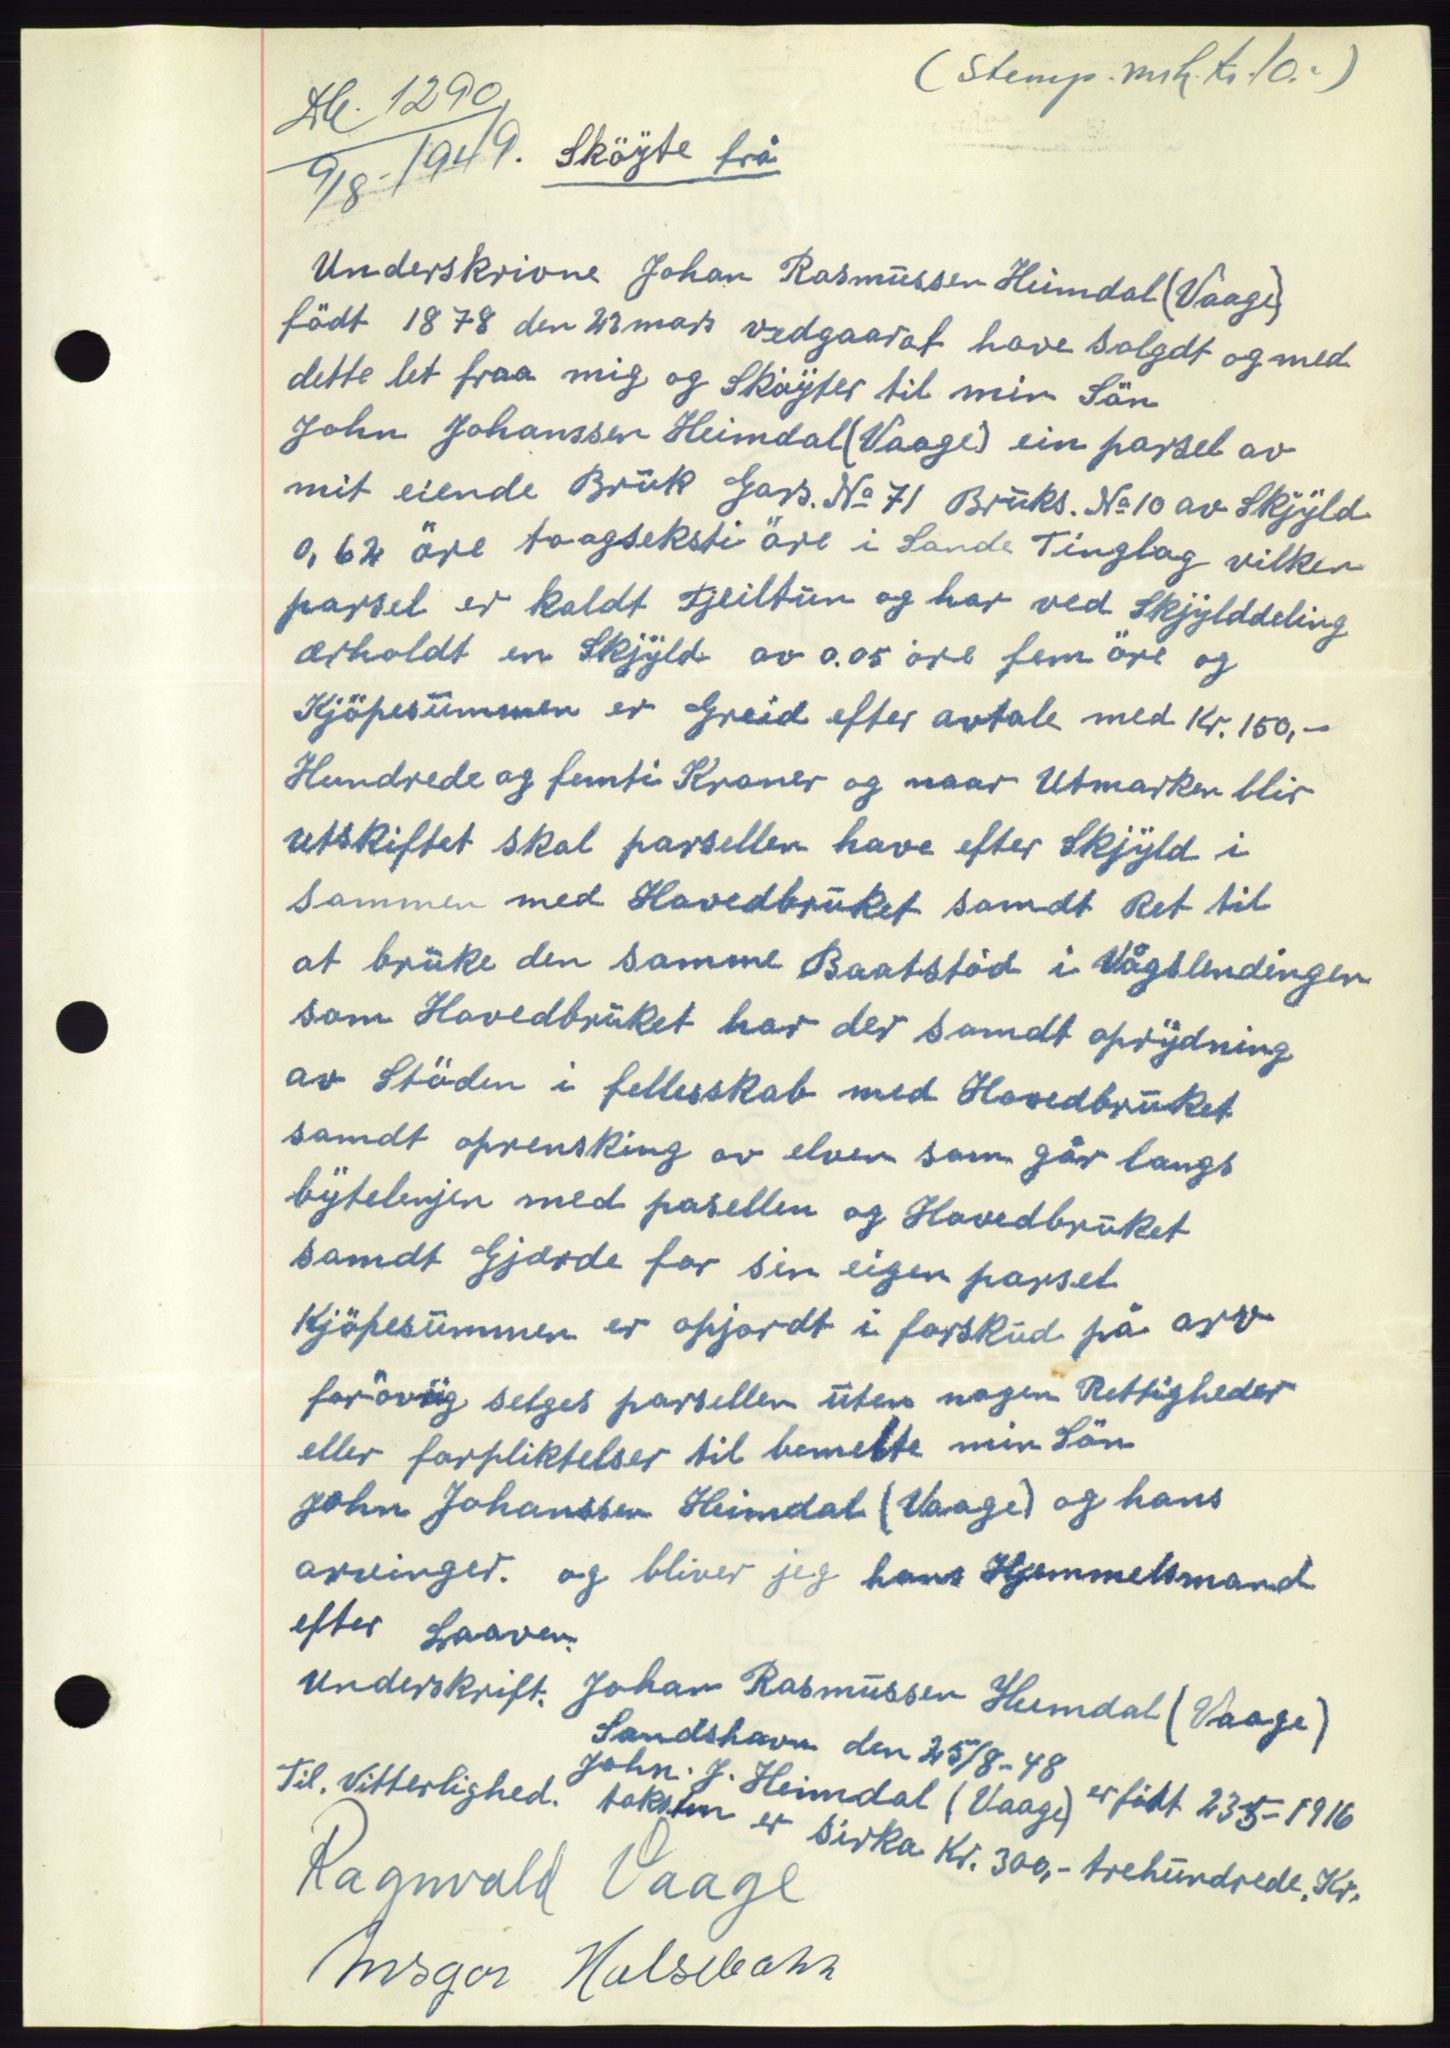 (Stemp. mrk. kr. 10.-)
Db. 1290
9/8-1949.
Sköyte frå
Underskrivne Johan Rasmussen Heimdal (Vaage)
födt 1878 den 23 mars vedgaarat have solgdt og med
dette let fraa mig og Sköyter til min Sön
John Johanssen Heimdal (Vaage) ein parsel av
mit eiende Brük Gars. No 71 Brüks. No 10 av Skjÿld
0,62 öre toogseksti öre i Sande Tinglag vilken
parsel er kaldt Tjeiltün og har ved Skjÿlddeling
ærholdt en Skjÿld av 0.05 öre fem öre og
Kjöpesümmen er Greid efter avtale med Kr. 150,-
Hundrede og femti Kroner og naar Utmarken blir
utskiftet skal parsellen have efter Skjÿld i
sammen med Hovedbrüket samdt Ret til
at brüke den samme Baatstöd i Vågslendingen
som Hovedbrüket har der samdt oprÿdning
av Stöden i fellesskab med Hovedbrüket
samdt oprensking av elven som går langs
bÿtelenjen med pasellen og Hovedbrüket
samdt Gjærde for sin eigen parsel
Kjöpesümmen er opjordt i forskud på arv
foröviig selges parsellen üten nogen Rettigheder
eller forpliktelser til bemelte min Sön
John Johanssen Heimdal (Vaage) og hans
arvinger. og bliver jeg hans Hjemmelsmand
efter Laaven.
Underskrift. Johan Rasmüssen Heimdal (Vaage)
Sandshavn den 25/8-48
John. J. Heimdal (Vaage) er födt 23 5-1916
Til. Vitterlighed. taksten er sirka Kr. 300,- trehündrede. Kr.
Ragnvald Vaage
Ansgar Halsebakk